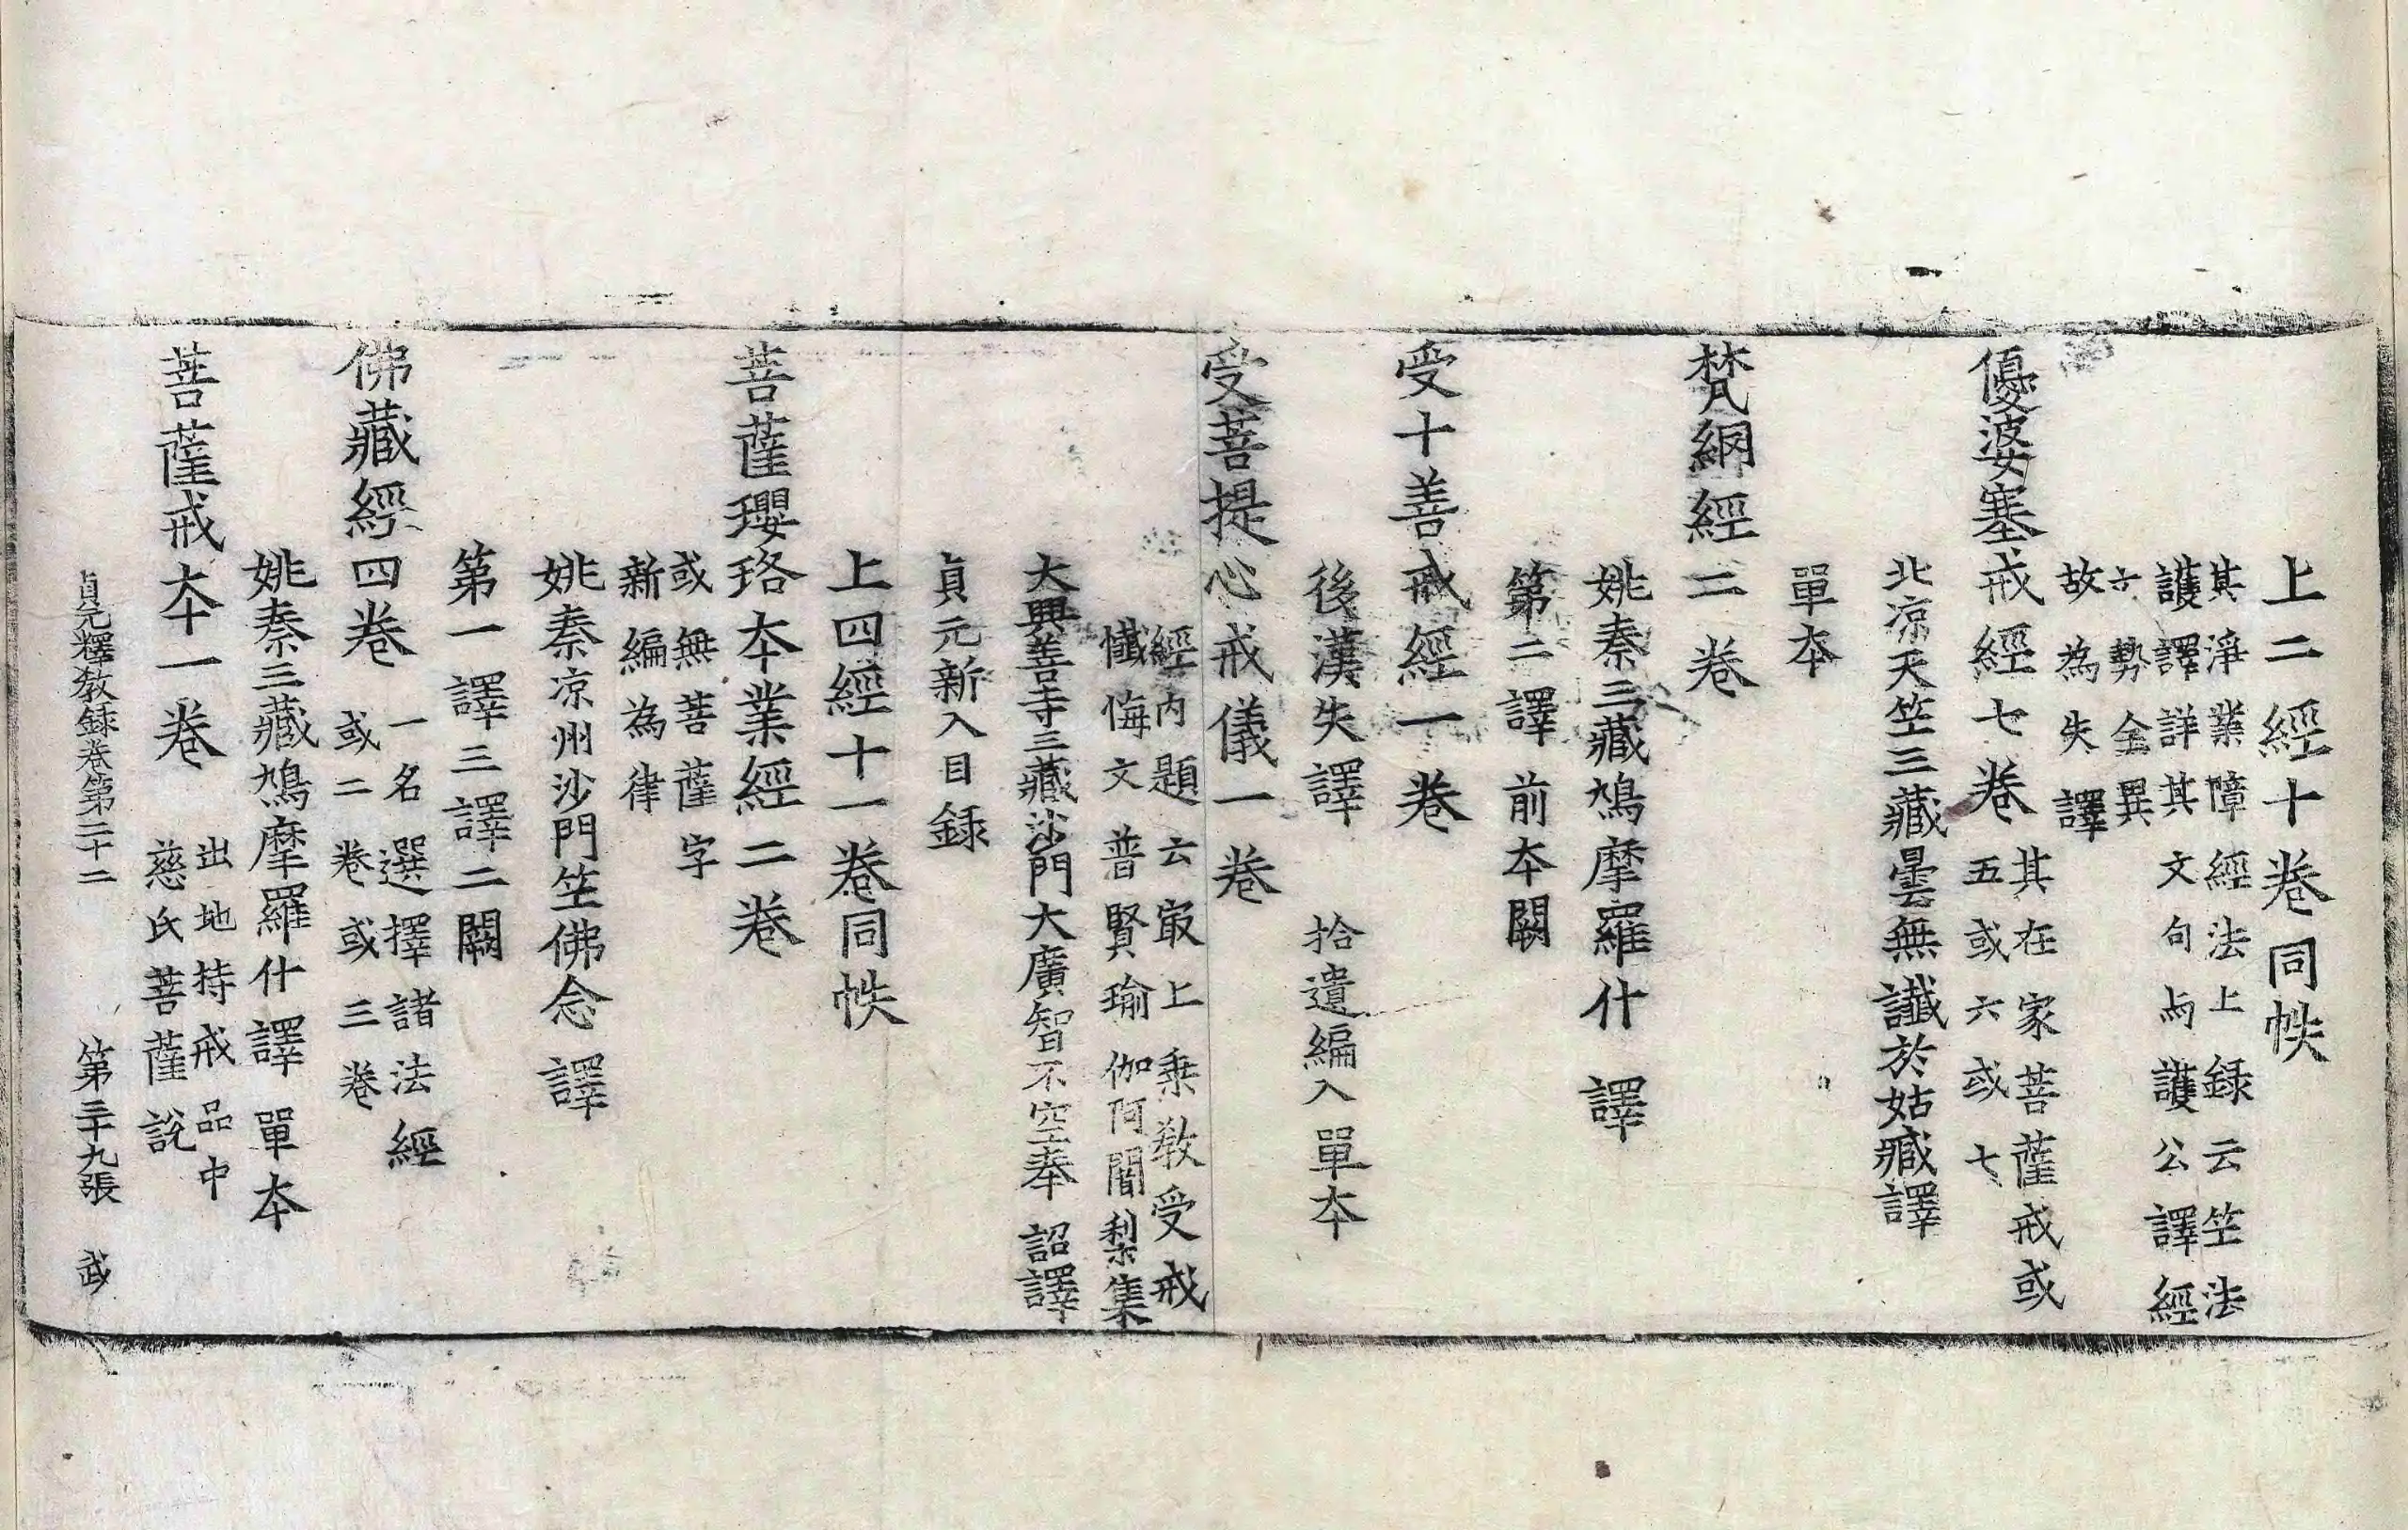 上二經十卷同帙
其淨業障經法上録云笁法
護譯詳其文句与護公譯經
六勢全異
故為失譯
優婆塞戒經七卷
其在家菩薩戒或
五或六或七
北凉天笁三藏曇無讖於姑臧譯
單夲
梵網經二卷
姚秦三藏鳩摩羅什譯
第二譯前夲闕
受十善戒經一卷
後漢失譯拾遺編入單夲
受菩提心戒儀一卷
經内題云㝡上乘教受戒
懺悔文普賢瑜伽阿闍梨集
大興善寺三藏沙門大廣智不空奉詔譯
貞元新入目録
上四經十一卷同帙
菩薩瓔珞夲業經二卷
或無菩薩字
新編為律
姚秦凉州沙門笁佛念譯
第一譯三譯二闕
佛藏經四卷
一名選擇諸法經
或二卷或三卷
姚秦三藏鳩摩羅什譯單夲
菩薩戒夲一卷
出地持戒品中
慈氏菩薩說
貞元釋教録卷第二十二 第三十九張 武